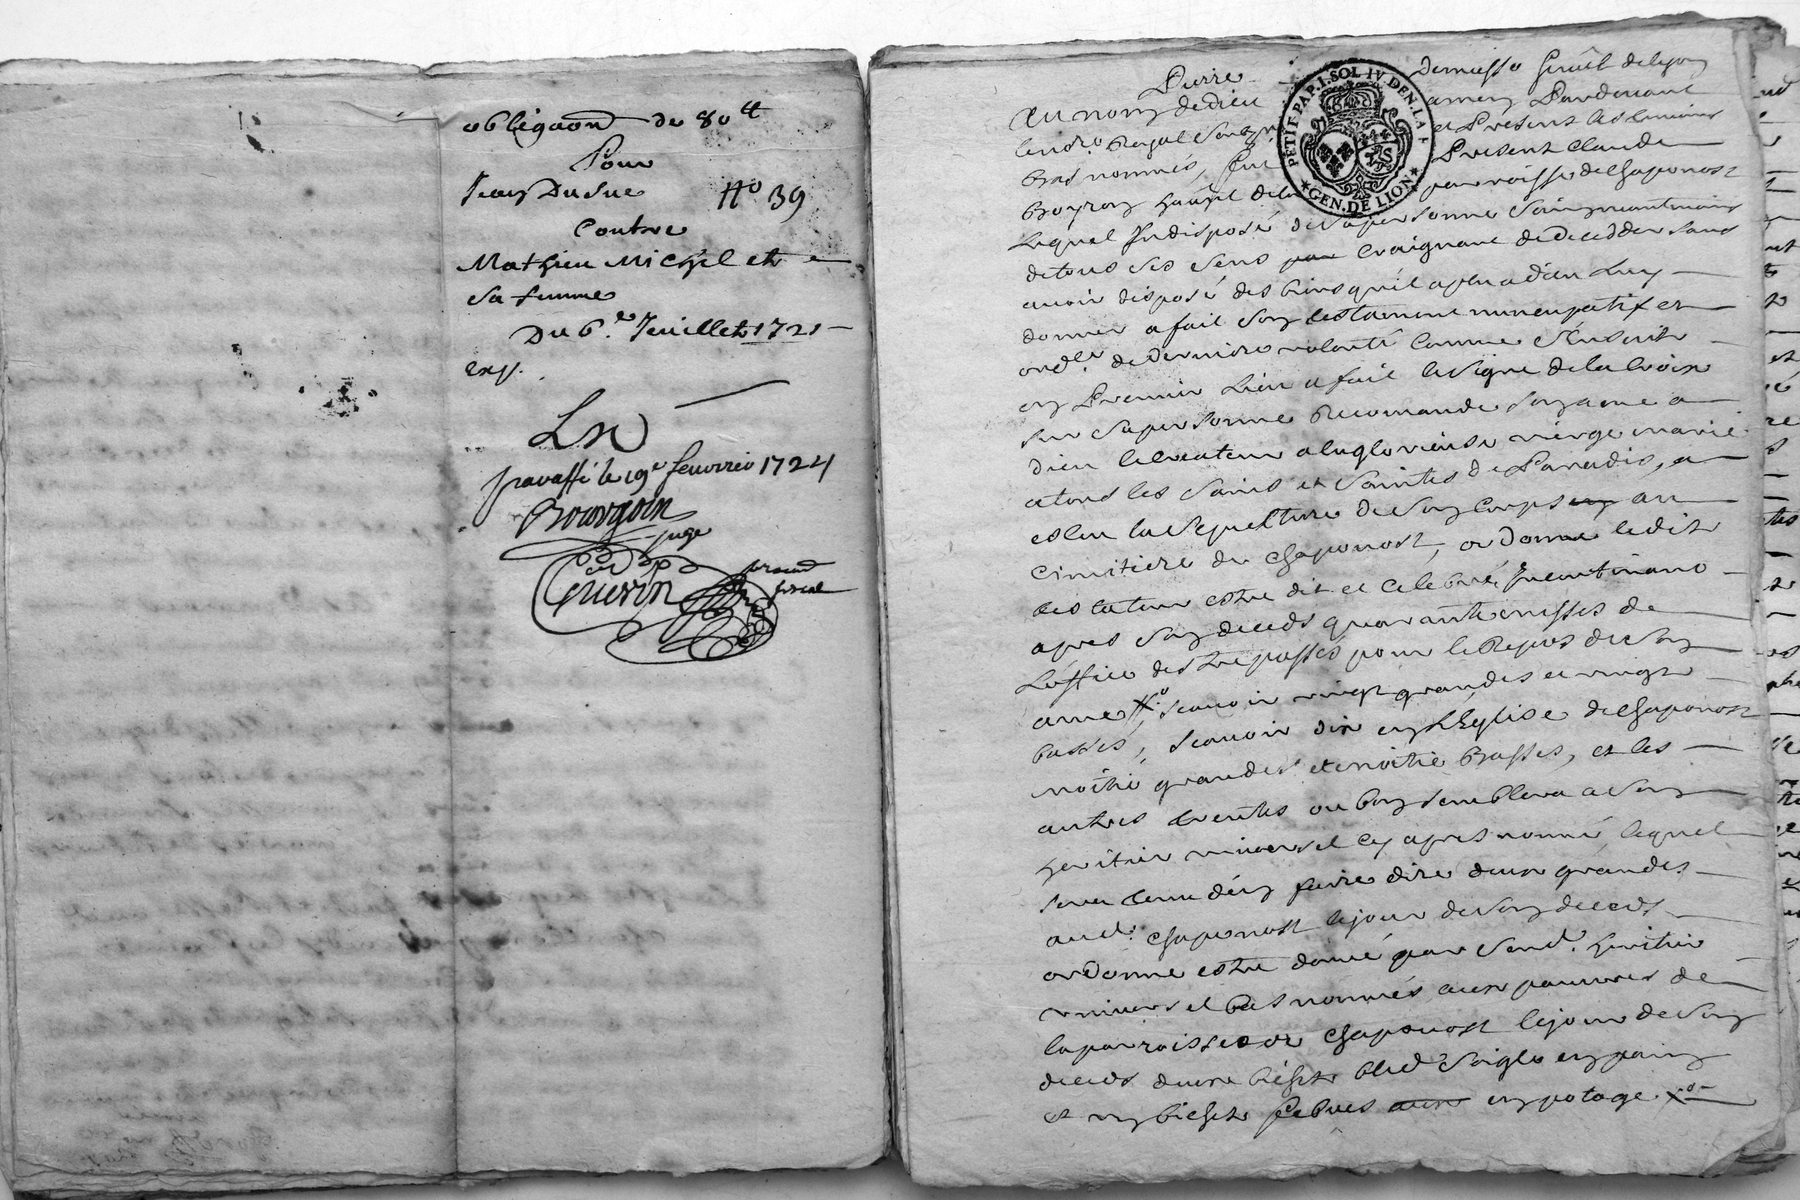 obligaon de 80 tt
Pour
Jean Dusue
N° 39
Contre
Mathieu Michel et
sa femme
Du 6.e Jeuillet 1721
exp.
paraffé le 19e fevvrier 1724
Bourgoin
juge
Guerin
procur
fiscal
PETIT PAP. 1. SOL IV DEN. LA F
GEN. DE LION
Pierre
Au nom de Dieu amen Pardevant
bas nommés, présent Claude
parroisse de Chaponost
Lequel Indisposé de sa personne sain neantmoins
detous ses sens par Craignant de Decedder sans
avoir disposé des biens qu'il a plu a dieu Luy
donner a fait son testament nuncupatif et
ord.e de derniere volonté comme s'ensuit
en Premier Lieu a fait le signe de la Croix
sur sa personne Recomandé son ame a
dieu le createur a la glorieuse vierge marie
a tous les Saints et Saintes de Paradis, a
eslu la sepulture de son Corps en au
Cimitiere de Chaponost, ordonne ledit
testateur estre dit et celebré Incontinant
apres son deceds quarante messes de
L'office des trepassés pour le Repos de son
ame scavoir vingt grandes et vingt
basses, scavoir dix en L'Eglise de Chaponost
moitié grandes et moitié Basses, et les
autres trentes ou bon semblera a son
heritier universel cy apres nommé lequel
sera tenu d'en faire dire deux grandes
aud. Chaponost le jour de son deceds
ordonne estre donné par sond. heritier
universel bas nommés aux pauvres de
la parroisse de Chaponost le jour de son
deceds deux bichets bled seigle en pain
et un bichet febves aux en potage